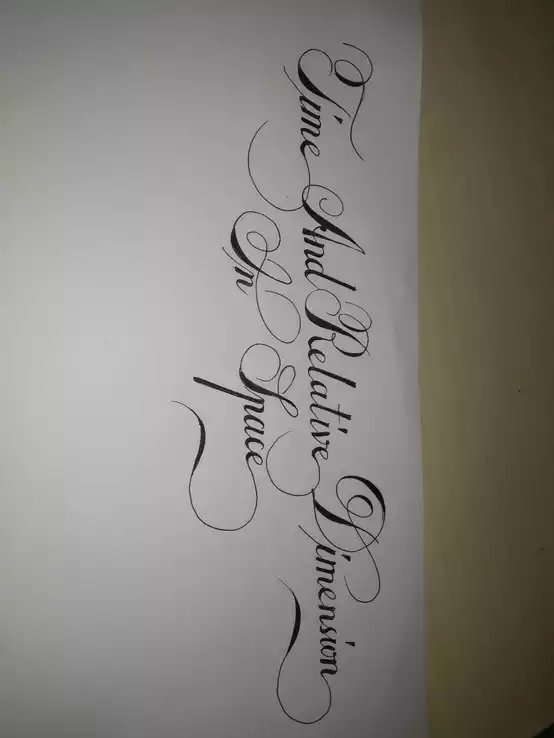 Time And Relative Dimension
In Space